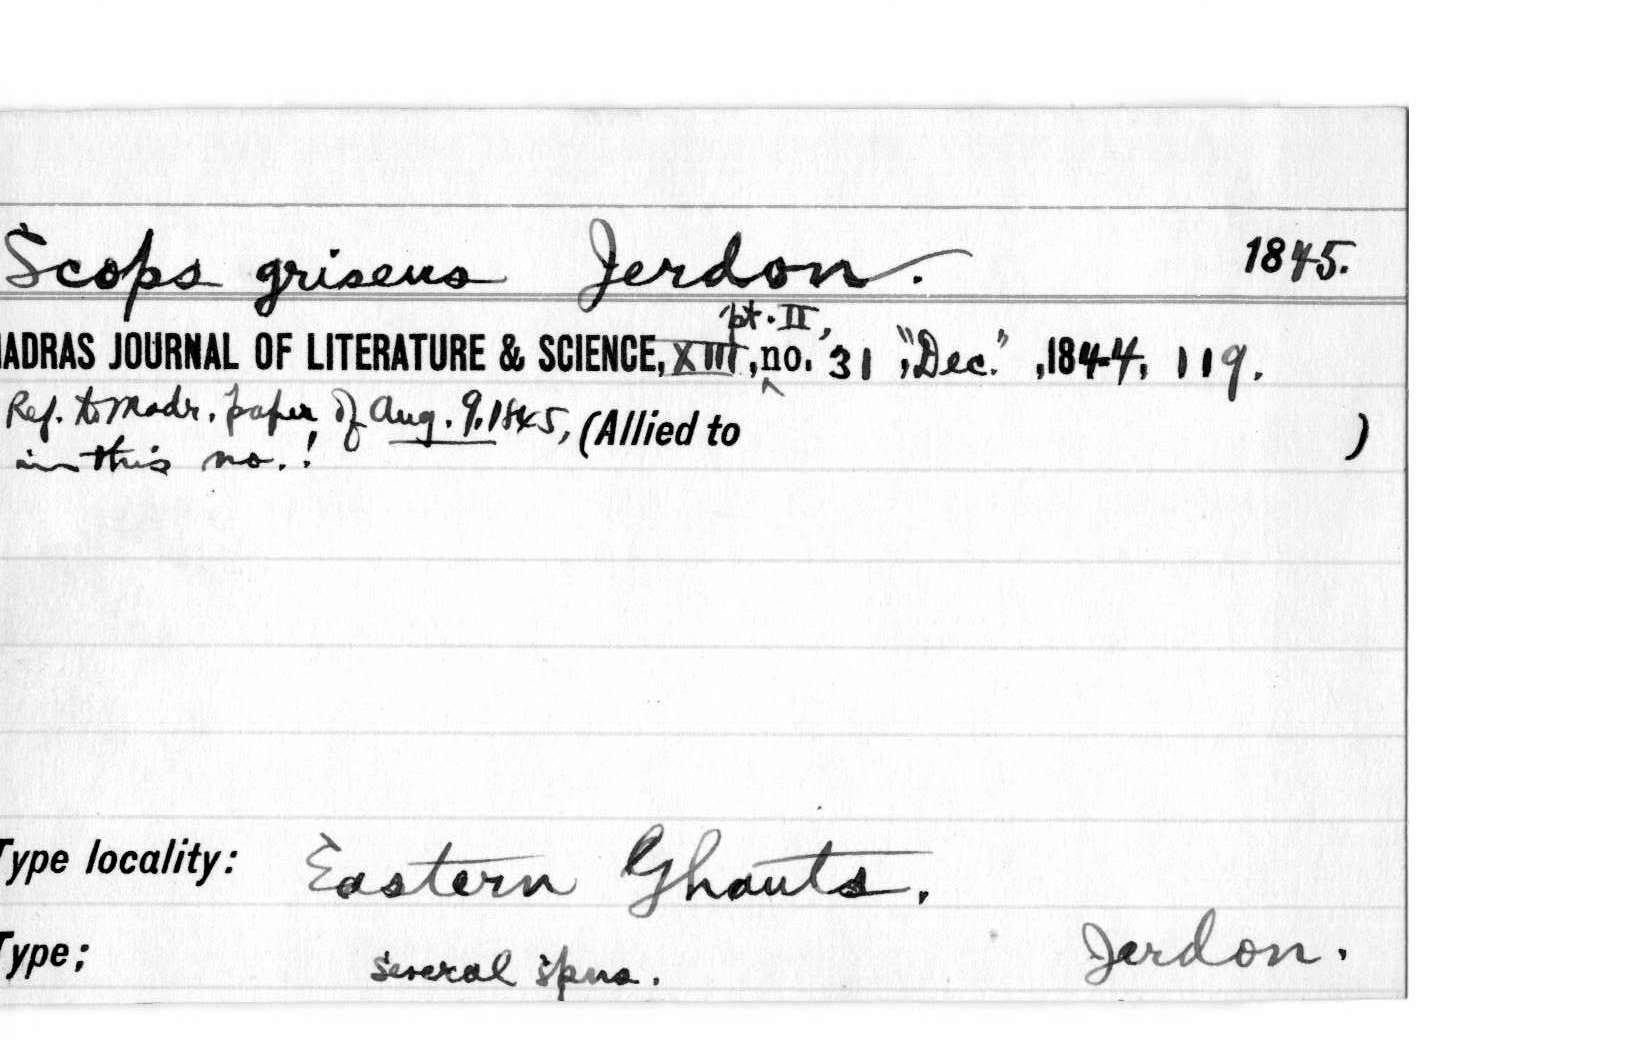 Scops griseus Jerdon. 1845.
pt. II,
MADRAS JOURNAL OF LITERATURE & SCIENCE, XIII, no. 31, "Dec.", 1844, 119.
Ref. to Madr. paper of Aug. 9, 1845, (Allied to )
in this no.!
Type locality: Eastern Ghauts.
Type; several spns. Jerdon.